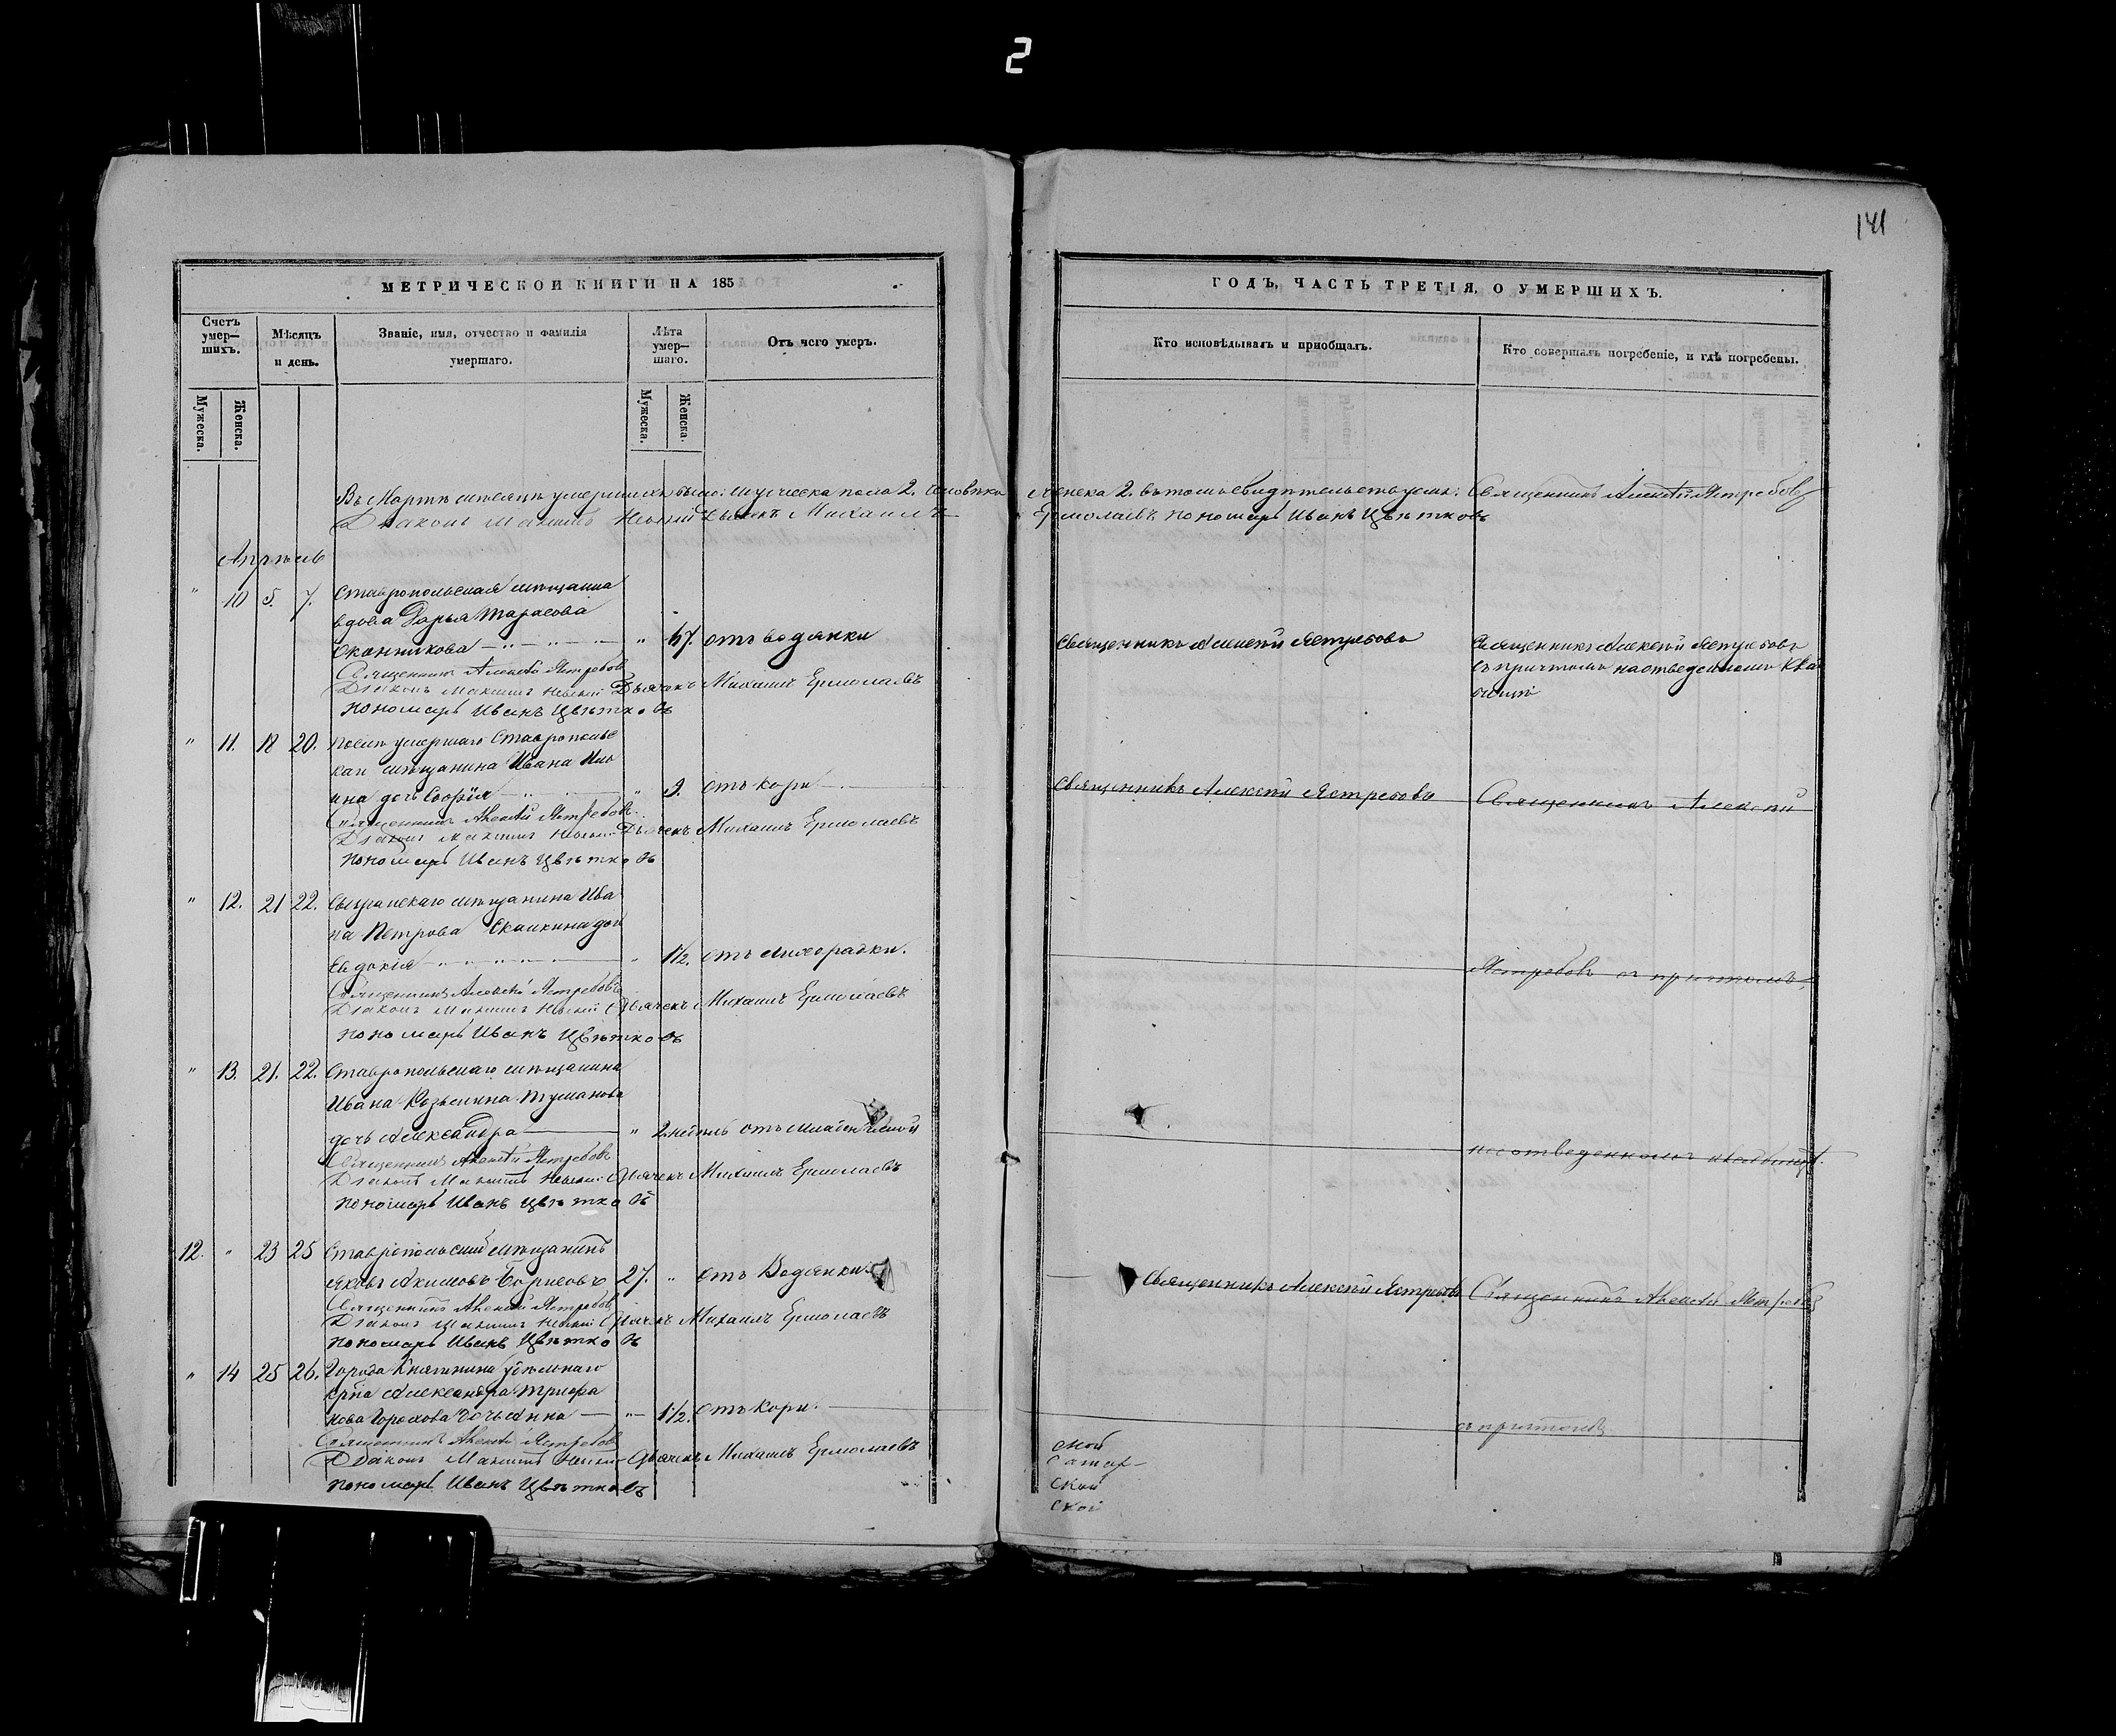 2
141
МЕТРИЧЕСКОЙ КНИГИ НА 185
ГОДЪ, ЧАСТЬ ТРЕТІЯ, О УМЕРШИХЪ.
Счетъ умер-шихъ.
Мужеска.
Женска.
Мѣсяцъ и день.
Званіе, имя, отчество и фамилія умершаго.
Лѣта умер-шаго.
Мужеска.
Женска.
Отъ чего умеръ.
Кто исповѣдывалъ и пріобщалъ.
Кто совершалъ погребеніе, и гдѣ погребены.
Въ Мартѣ мѣсяцѣ умершихъ было: мужеска пола 2. человѣка женска 2. въ томъ свидѣтельствуемъ: Священникъ Алексѣй Ястребовъ
Діаконъ Максимъ Невскій Дьячекъ Михаилъ Ермолаевъ Пономарь Иванъ Цвѣтковъ
Апрѣль
" 10 5. 7. Ставропольская мѣщанка
вдова Дарья Тарасова
" 67. отъ водянки Священникъ Алексѣй Ястребовъ Священникъ Алексѣй Ястребовъ
съ причтомъ на отведенномъ кла
дбищѣ
Священникъ Алексѣй Ястребовъ
Діаконъ Максимъ Невскій Дьячекъ Михаилъ Ермолаевъ
Пономарь Иванъ Цвѣтковъ
" 11. 18 20. Послѣ умершаго Ставрополь
скаго мѣщанина Ивана Иль
ина дочь Софія " 9. отъ кори Священникъ Алексѣй Ястребовъ Священникъ Алексѣй
Священникъ Алексѣй Ястребовъ
Діаконъ Максимъ Невскій Дьячекъ Михаилъ Ермолаевъ
Пономарь Иванъ Цвѣтковъ
" 12. 21 22. Сызранскаго мѣщанина Ива
на Петрова дочь
Евдокія " 1½. отъ лихорадки. Ястребовъ съ причтомъ,
Священникъ Алексѣй Ястребовъ
Діаконъ Максимъ Невскій Дьячекъ Михаилъ Ермолаевъ
Пономарь Иванъ Цвѣтковъ
" 13. 21. 22. Ставропольскаго мѣщанина
Ивана Козьмина Туманова
дочь Александра " 2. недѣль отъ младенческой на отведенномъ кладбищѣ.
Священникъ Алексѣй Ястребовъ
Діаконъ Максимъ Невскій Дьячекъ Михаилъ Ермолаевъ
Пономарь Иванъ Цвѣтковъ
12. " 23 25 Ставропольскій мѣщанинъ
Яковъ Акимовъ Борисовъ 27. " отъ Водянки Священникъ Алексѣй Ястребовъ Священникъ Алексѣй Ястребовъ
Священникъ Алексѣй Ястребовъ
Діаконъ Максимъ Невскій Дьячекъ Михаилъ Ермолаевъ
Пономарь Иванъ Цвѣтковъ
" 14 25 26. Города Княгинина удѣльнаго
крѣна Александра Трифа
нова Горохова дочь Анна " 1½. отъ Кори. съ причтомъ
Священникъ Алексѣй Ястребовъ
Діаконъ Максимъ Невскій Дьячекъ Михаилъ Ермолаевъ
Пономарь Иванъ Цвѣтковъ
ской
ской
ской